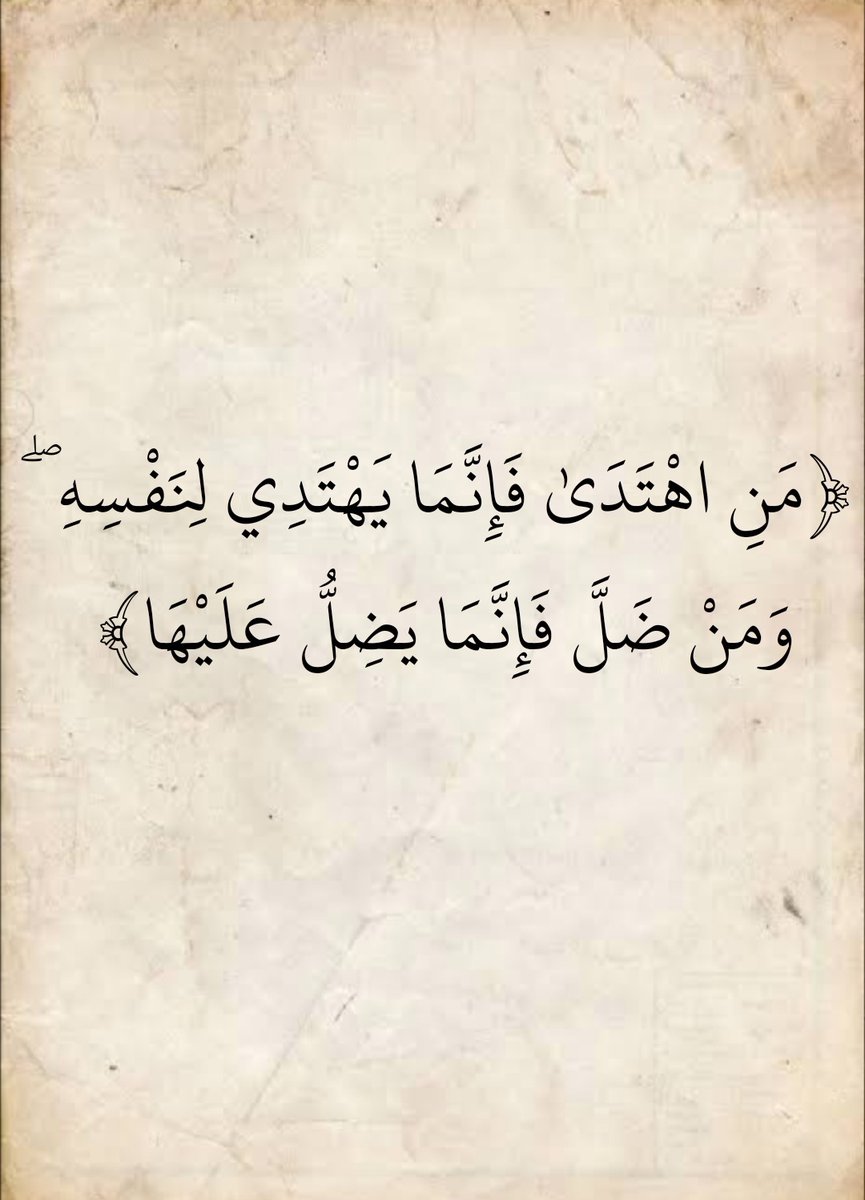 ﴿مَنِ اهْتَدَىٰ فَإِنَّمَا يَهْتَدِي لِنَفْسِهِ ۖ
وَمَنْ ضَلَّ فَإِنَّمَا يَضِلُّ عَلَيْهَا﴾